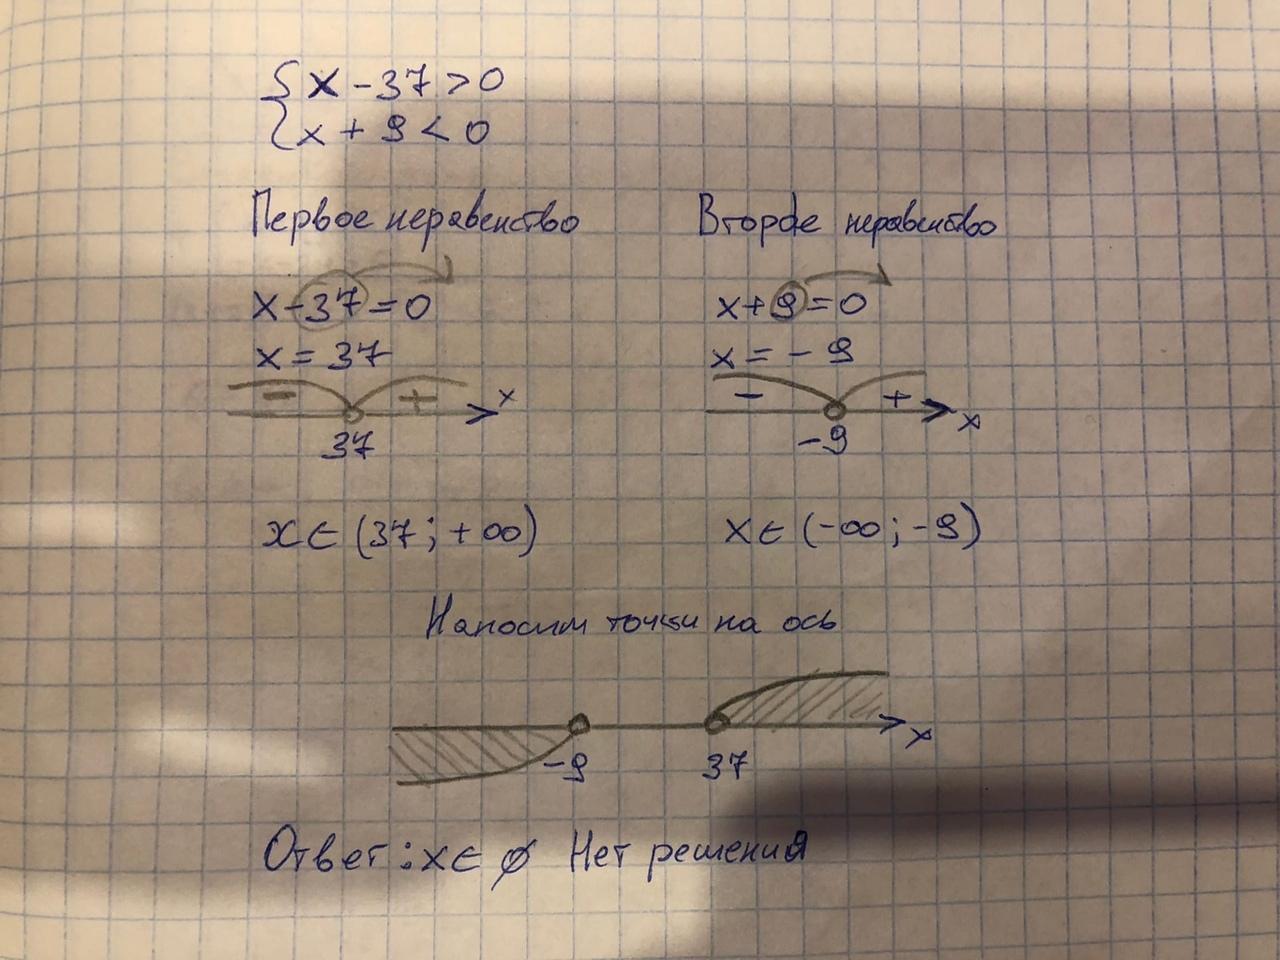 {x - 37 > 0
{x + 9 < 0
Первое неравенство
x - 37 = 0
x = 37
- + x
37
x ∈ (37; +∞)
Второе неравенство
x + 9 = 0
x = - 9
- + x
-9
x ∈ (-∞; -9)
Наносим точки на ось
x
-9 37
Ответ: x ∈ ∅ Нет решения